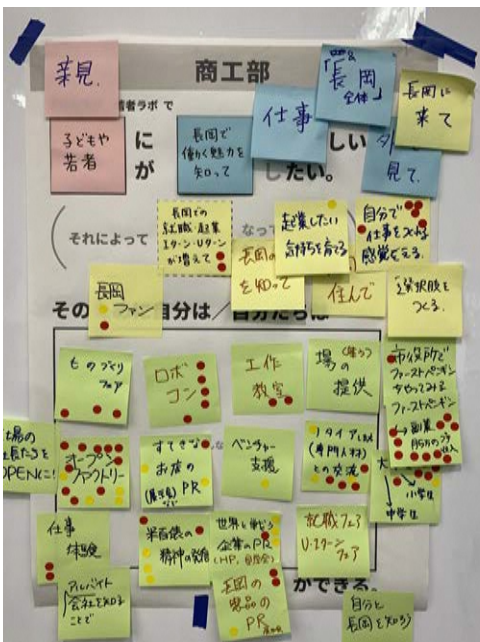 商工部
業見.
「長岡
全体」
長岡に
来て
仕事
若者ラボ で
子どもや
若者
に
が
長岡で
働く魅力を
知って
しい
したい。
見て.
それによって
長岡での
就職・起業
Iターン・Uターン
が増えて
なっ
起業したい
気持ちを育てる
自分で
仕事をつくる
感覚を
長岡の
を知って
住んで
選択肢を
つくる.
長岡
ファン
その
自分は/自分たちは
ものづくり
フェア
ロボ
コン
工作
教室
場の
提供
市役所で
ファーストペンギン
をやってみる
ファーストペンギン
副業
OPENに!
オープン
ファクトリー
すてきな
お店の
PR
ベンチャー
支援
リタイアした人
(専門人材)
との交流
小学生
中学生
仕事
体験
米百俵の
精神の発信
世界と戦う
企業のPR
就職フェア
U・Iターン
フェア
アルバイト
会社を知る
ことで
長岡の
製品の
PR
ができる。
自分と
長岡を知ろう